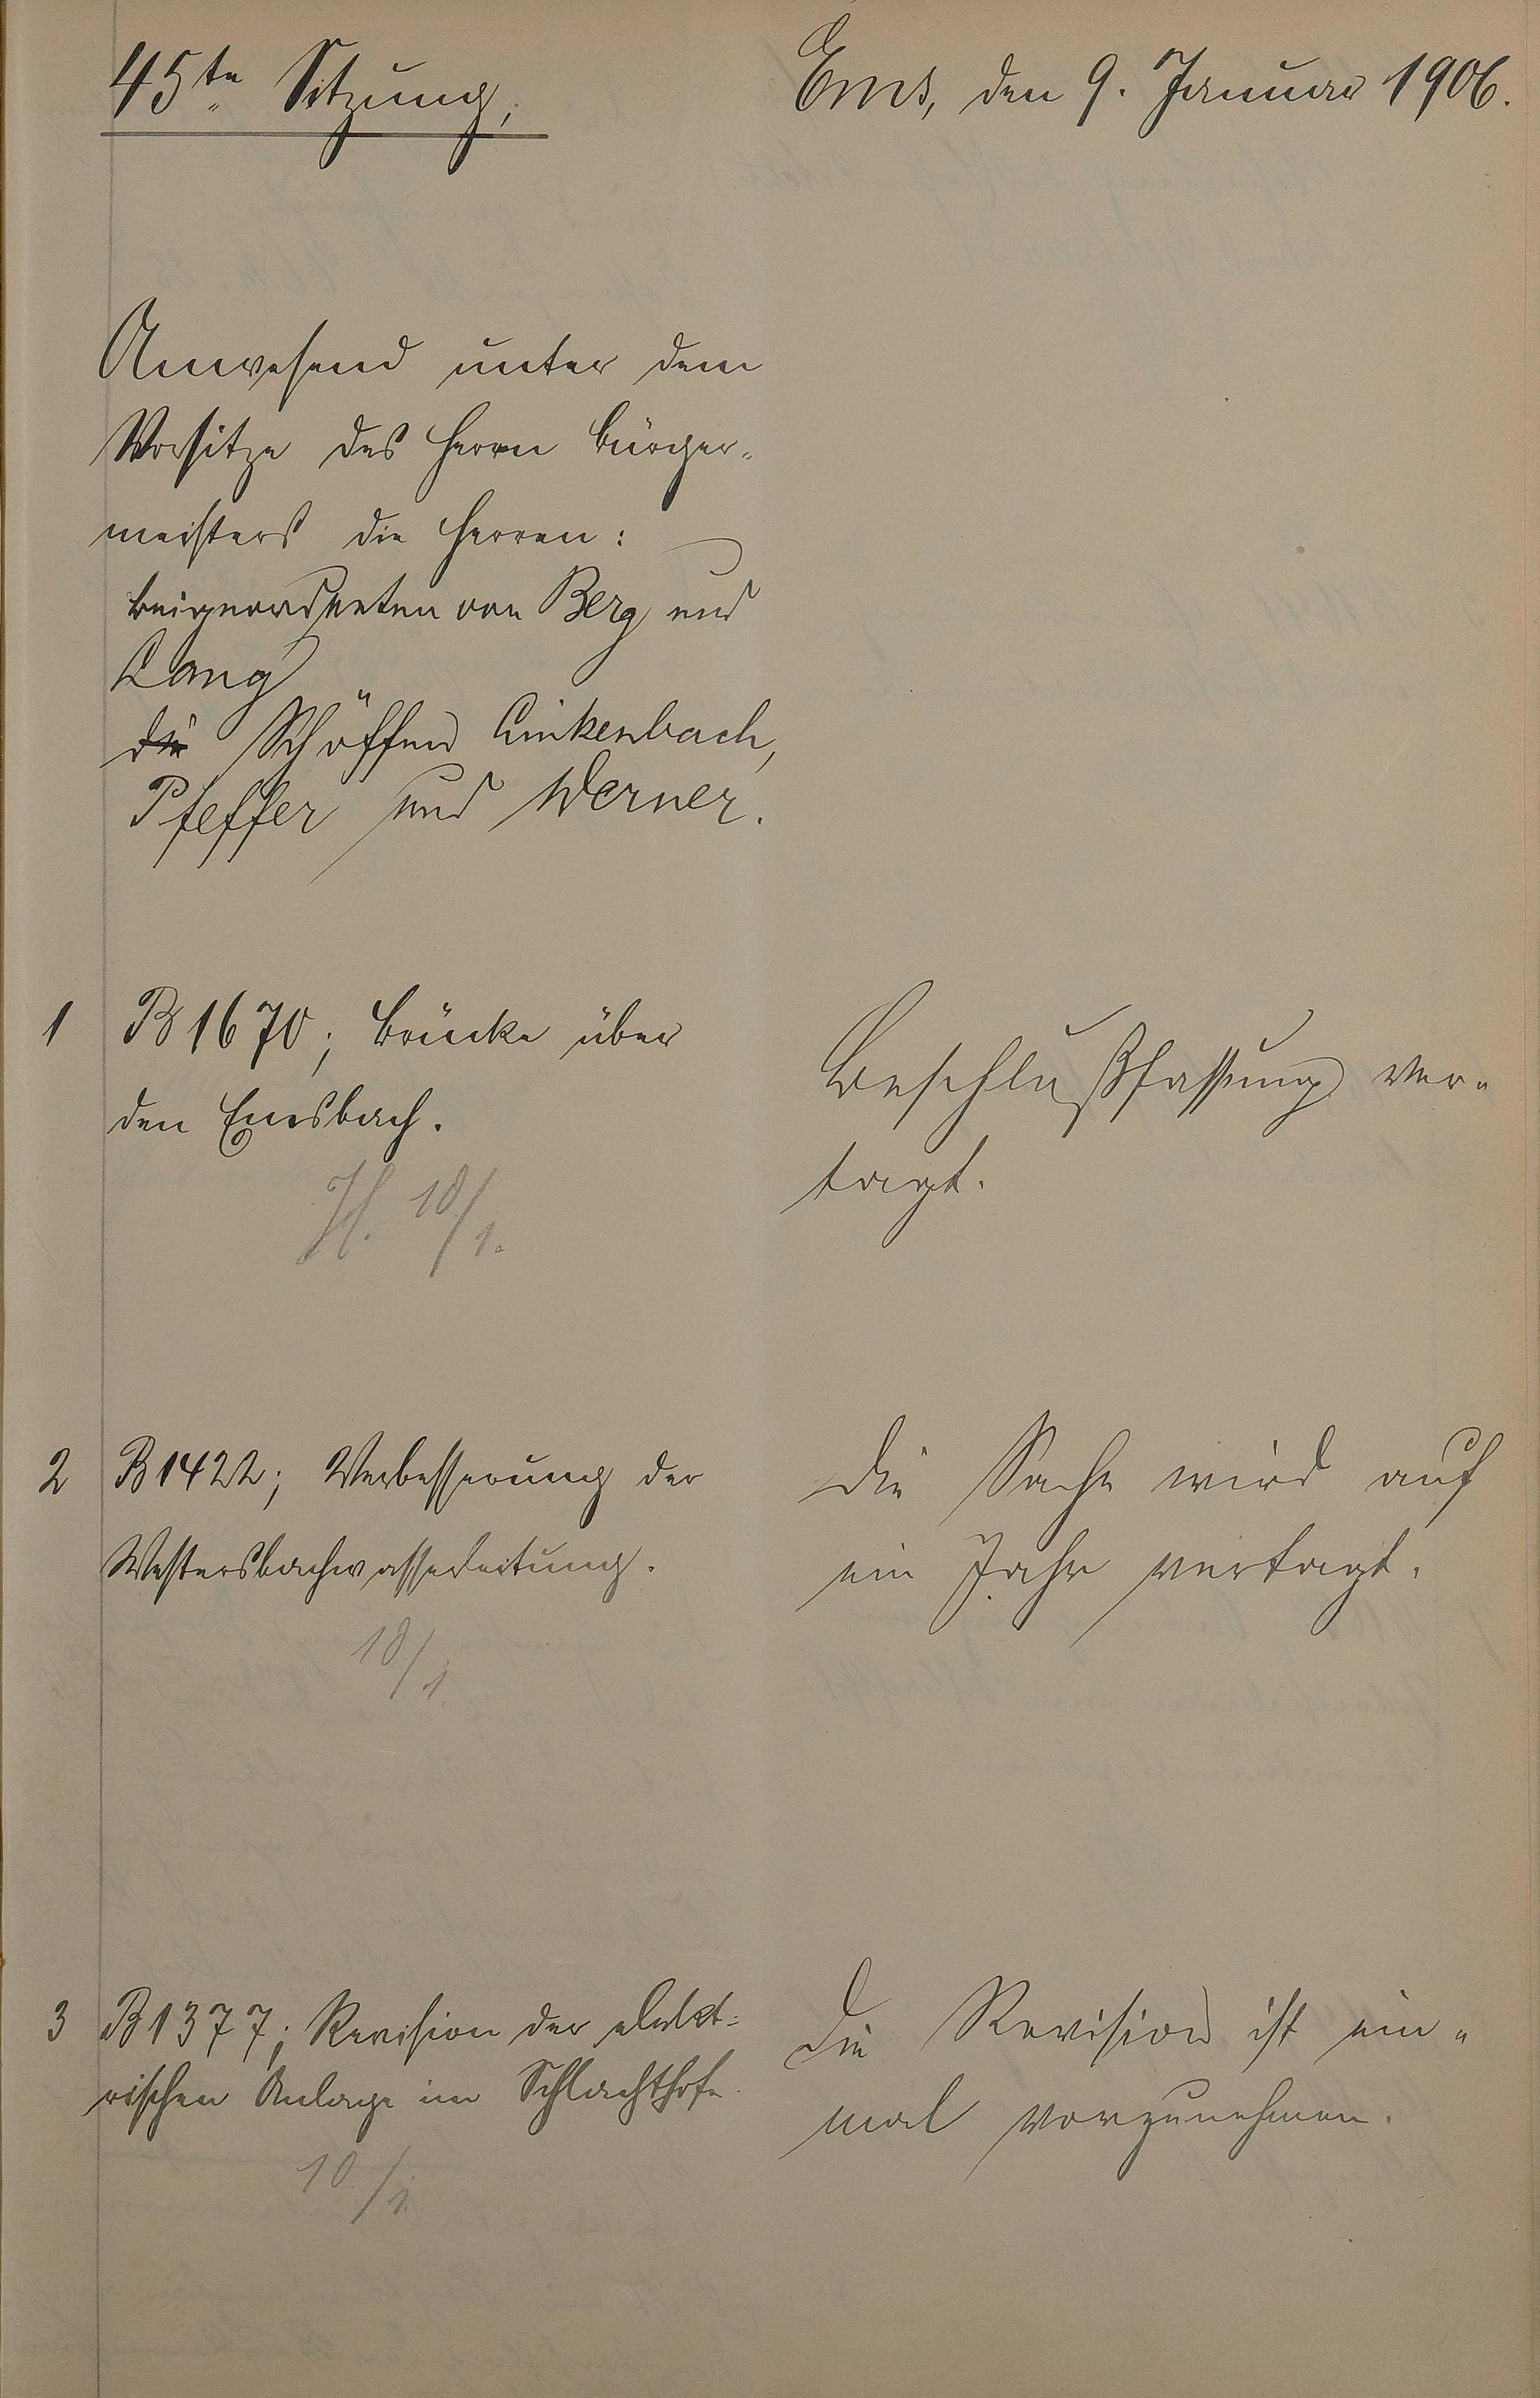 45te Sitzung,
Ems, den 9. Januar 1906.
Anwesend unter dem
Vorsitze des Herrn Bürger-
meisters die Herren:
Beigeordneten von Berg und
Lang
die Schöffen Linkenbach,
Pfeffer und Werner.
1 B 1670; Brücke über
den Emsbach.
Beschlußfassung ver-
tagt.
2 B 1422; Verbesserung der
Westersbachwasserleitung.
Die Sache wird auf
ein Jahr vertagt.
18/1.
3 B 1377; Revision der elekt-
rischen Anlage im Schlachthofe.
Die Revision ist ein-
mal vorzunehmen.
10./1.